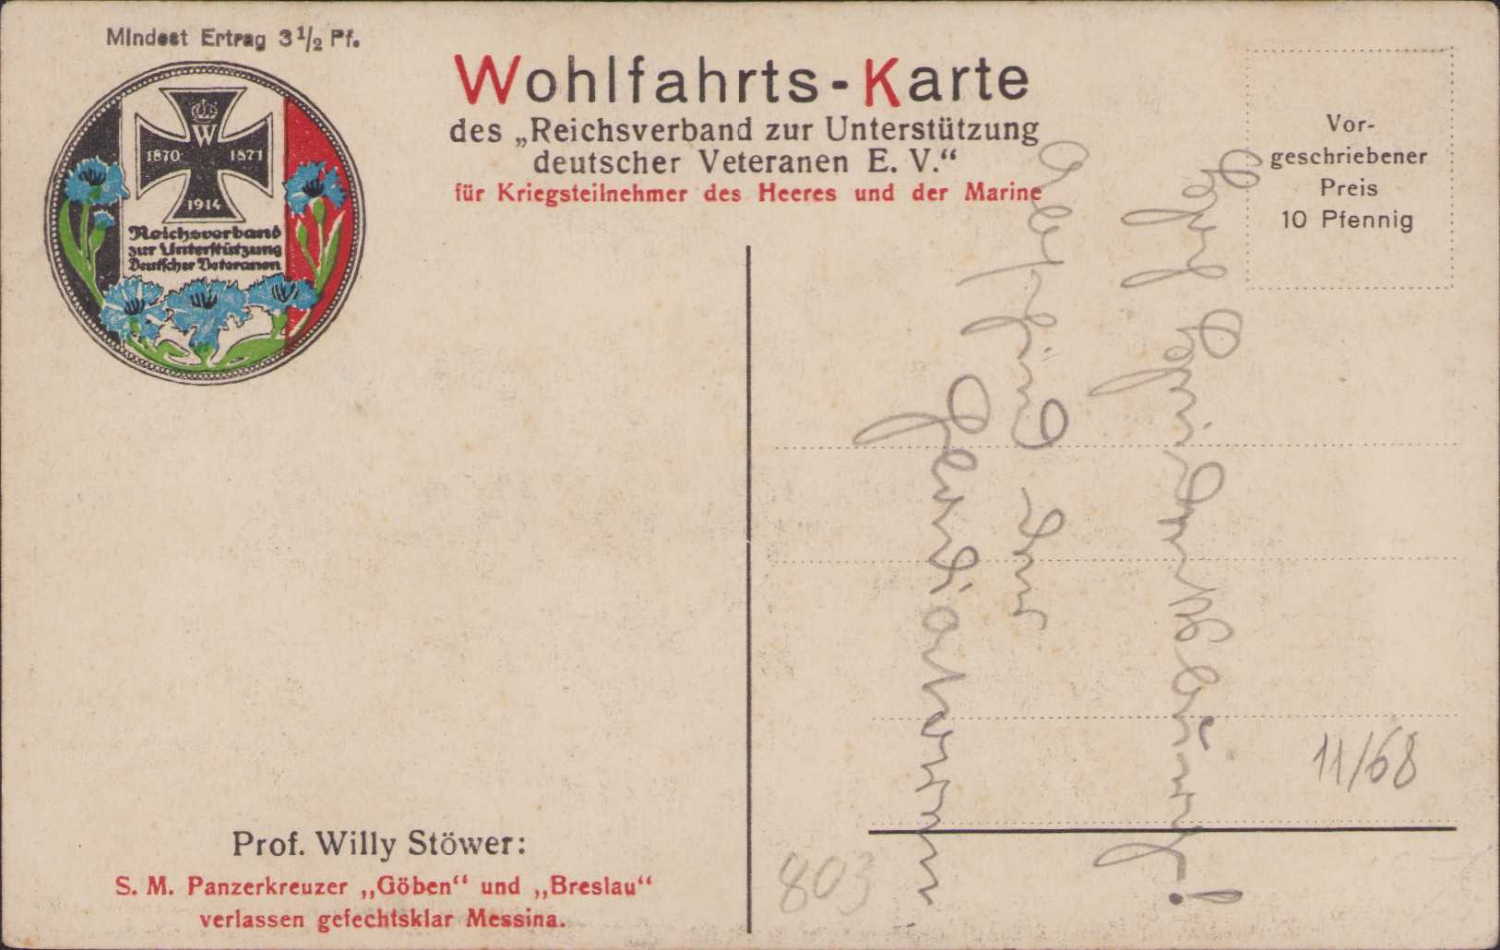 Mindest Ertrag 3 1/2 Pf.
W
1870 1871
1914
Reichsverband
zur Unterstützung
Deutscher Veteranen
Wohlfahrts-Karte
des „Reichsverband zur Unterstützung
deutscher Veteranen E. V.“
für Kriegsteilnehmer des Heeres und der Marine
Vor-
geschriebener
Preis
10 Pfennig
11/68
803
Prof. Willy Stöwer:
S. M. Panzerkreuzer „Göben“ und „Breslau“
verlassen gefechtsklar Messina.